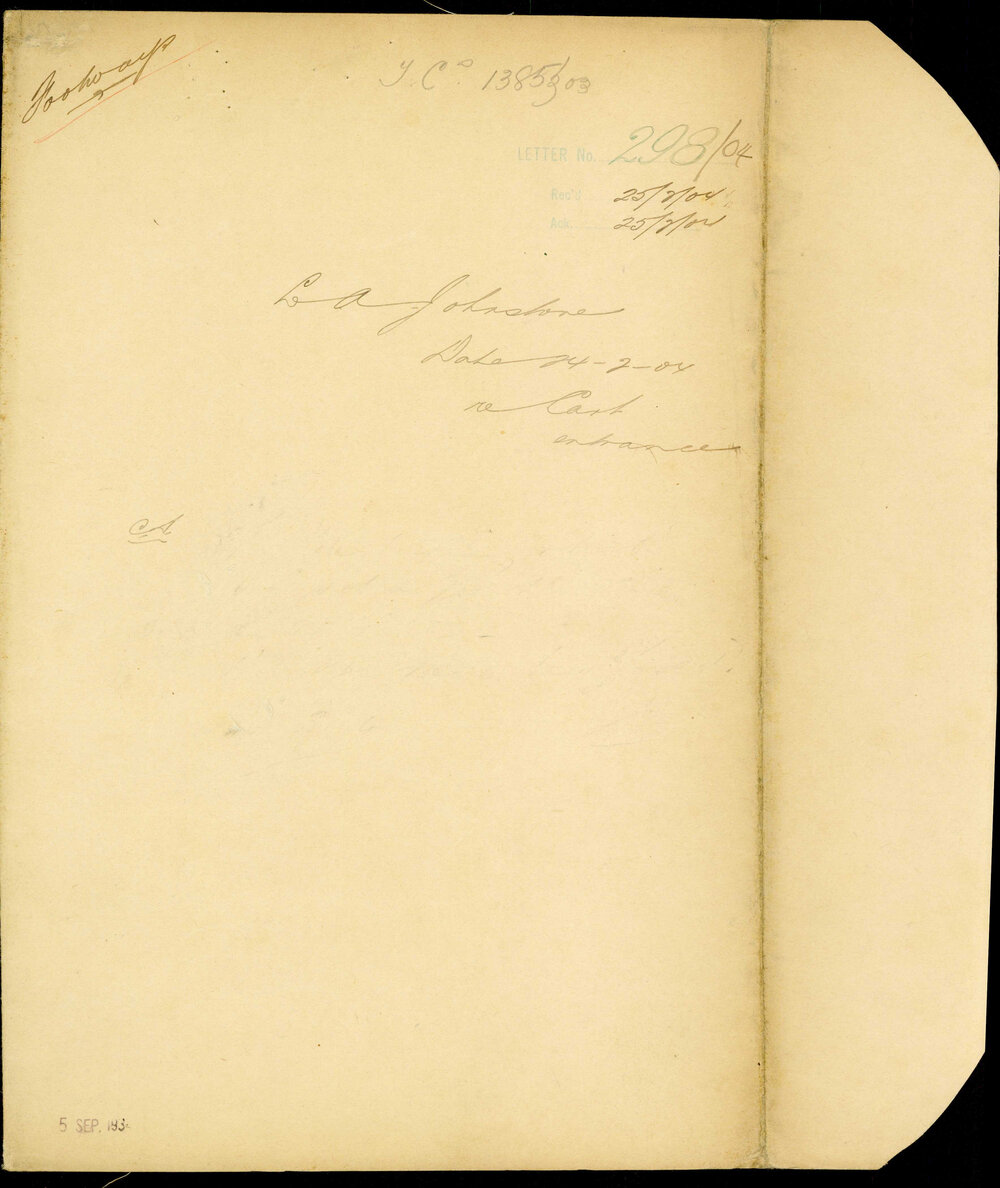 Footways
T. Co 1385/03
LETTER No. 298/04
Rec'd 25/2/04
Ack. 25/2/04
L A Johnstone
Date 24-2-04
re Cart
entrance
5 SEP. 193